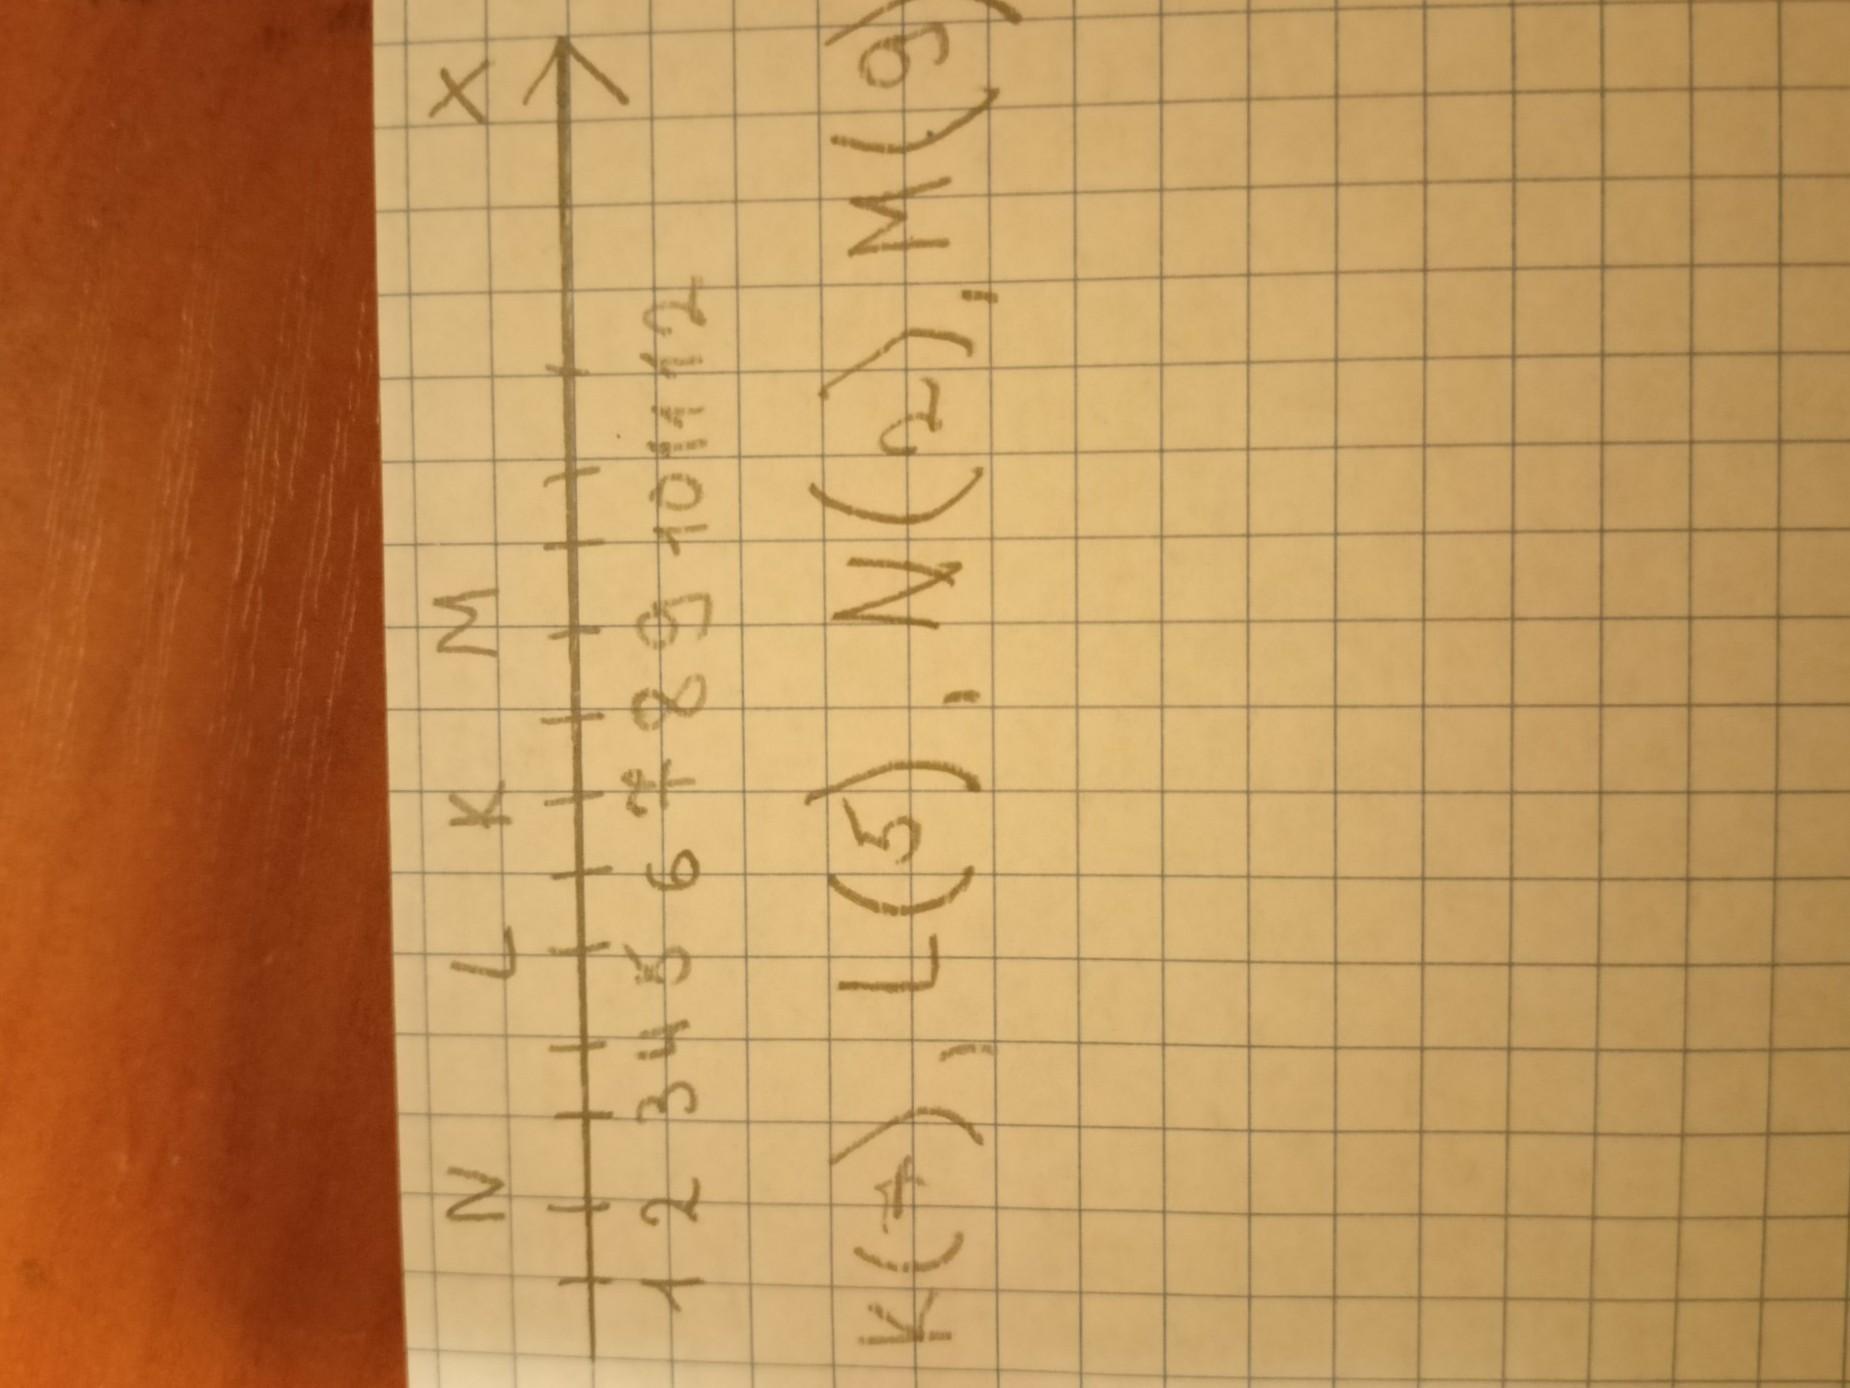 N L K M X
1 2 3 4 5 6 7 8 9 10 11 12
K(7), L(5), N(2), M(9)